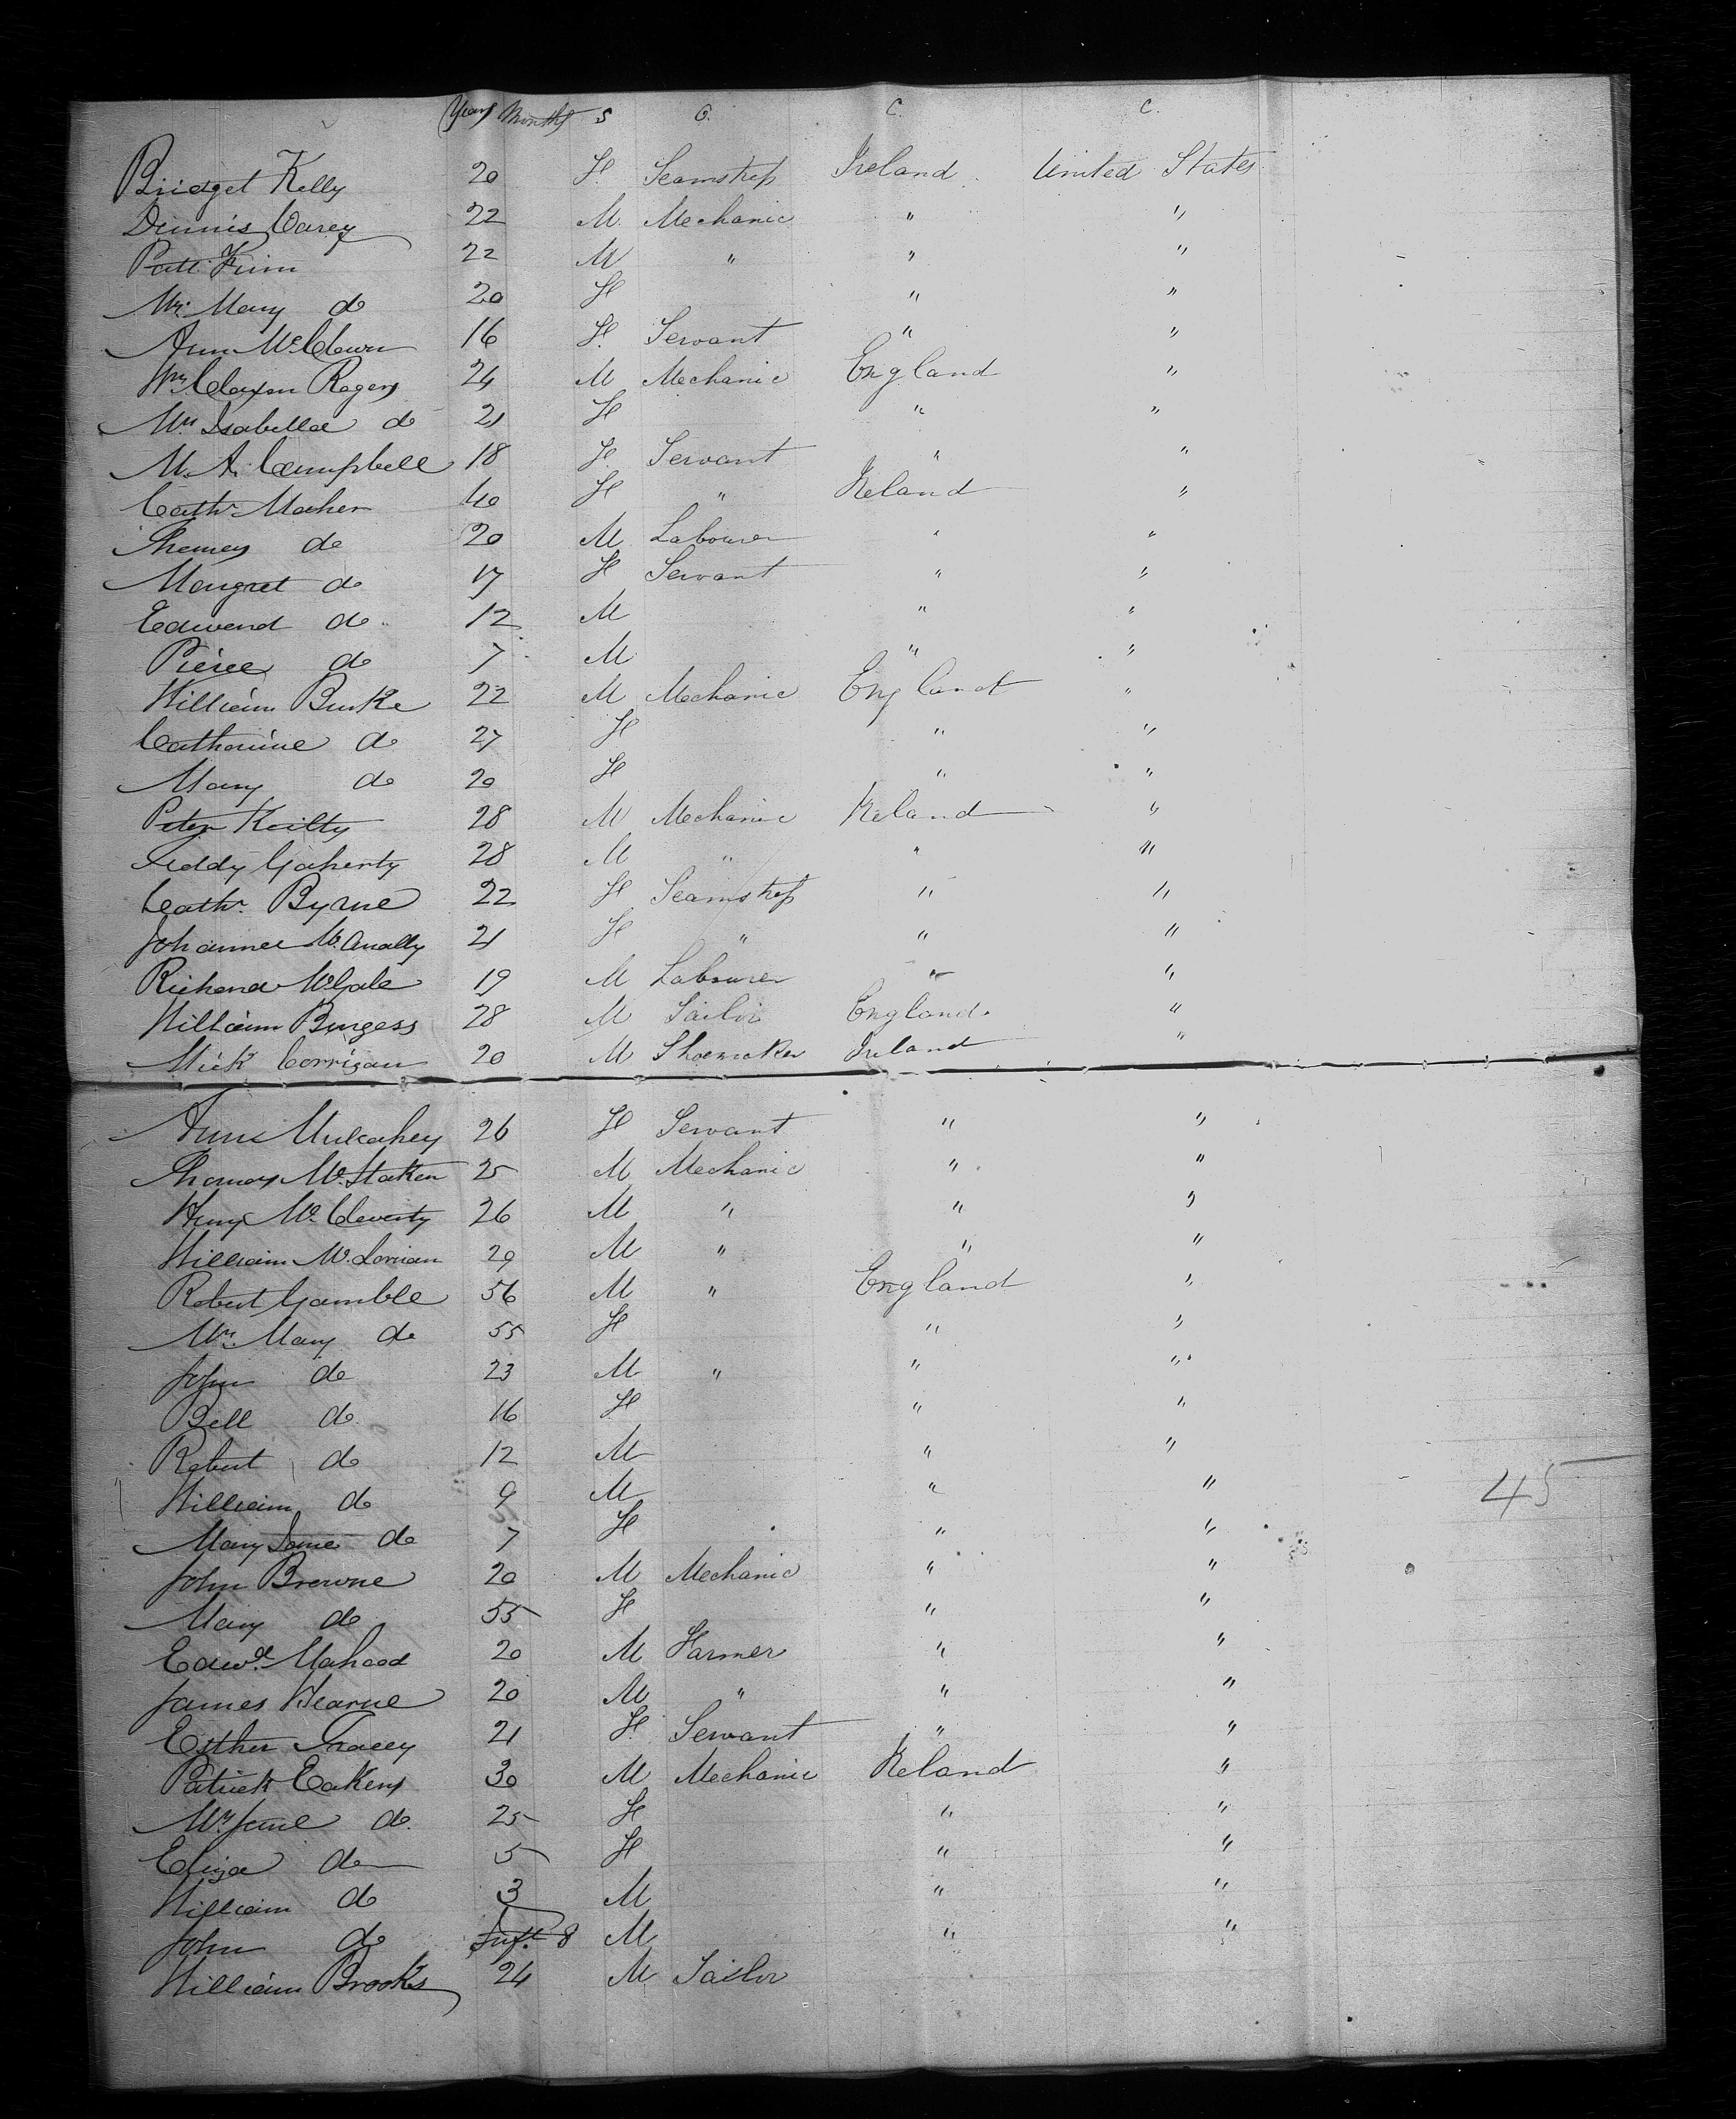 Years Months S O. C. C.
Bridget Kelly 20 F. Seamstress Ireland United States
Dennis Carey 22 M. Mechanic " "
Patt. Finn 22 M " " "
Mrs. Mary do 20 F " "
Ann McCluwn 16 F. Servant " "
Wm. Claxson Rogers 24 M Mechanic England "
Mrs Isabella do 21 F " "
M. A. Campbell 18 F. Servant " "
Cathr. Maher 40 F " Ireland "
Thomas do 20 M Labourer " "
Margret do 17 F Servant " "
Edward do 12 M " "
Pierce do 7 M " "
William Burke 22 M Mechanic England "
Catherine do 27 F " "
Mary do 20 F " "
Peter Keilty 28 M Mechanic Ireland "
Teddy Gaherty 28 M " " "
Cathr. Byrne 22 F Seamstress " "
Johanna McAnally 21 F " " "
Richard McGale 19 M Labourer " "
William Burgess 28 M Tailor England "
Mick Corrigan 20 M Shoemaker Ireland "
Anne Mulcahey 26 F Servant " "
Thomas McStaken 25 M Mechanic " "
Henry McCleverty 26 M " " "
William McLorrian 29 M " " "
Robert Gamble 56 M " England "
Mrs. Mary do 55 F " "
John do 23 M " " "
Bell do 16 F " "
Robert do 12 M " "
William do 9 M " "
45
Mary Jane do 7 F " "
John Browne 20 M Mechanic " "
Mary do 55 F " "
Edwd. Mahood 20 M Farmer " "
James Hearne 20 M " " "
Esther Tracey 21 F. Servant " "
Patrick Eakens 30 M Mechanic Ireland "
Mrs Jane do. 25 F " "
Eliza do 5 F " "
William do 3 M " "
John do Inft. 8 M " "
William Brooks 24 M Tailor